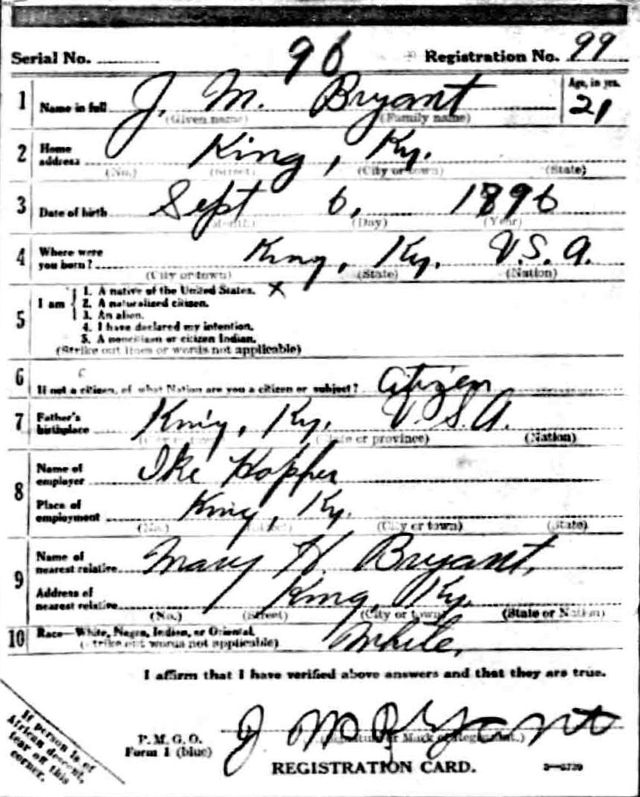 Serial No. 96 Registration No. 99
1 Name in full J. M. Bryant Age, in yrs. 21
(Given name) (Family name)
2 Home address King, Ky.
(No.) (Street) (City or town) (State)
3 Date of birth Sept 6, 1896
(Month) (Day) (Year)
4 Where were you born? King, Ky. U.S.A.
(City or town) (State) (Nation)
5 I am
1. A native of the United States. X
2. A naturalized citizen.
3. An alien.
4. I have declared my intention.
5. A noncitizen or citizen Indian.
(Strike out lines or words not applicable)
6 If not a citizen, of what Nation are you a citizen or subject? Citizen
7 Father's birthplace King, Ky. U.S.A.
(City or town) (State or province) (Nation)
8 Name of employer Ike Hopper
Place of employment King, Ky.
(No.) (Street) (City or town) (State)
9 Name of nearest relative Mary H. Bryant,
Address of nearest relative King Ky.
(No.) (Street) (City or town) (State or Nation)
10 Race—White, Negro, Indian, or Oriental. White.
(Strike out words not applicable)
I affirm that I have verified above answers and that they are true.
P. M. G. O.
Form 1 (blue)
J M Bryant
(Signature or Mark of Registrant.)
REGISTRATION CARD.
If person is of
African descent,
tear off this
corner.